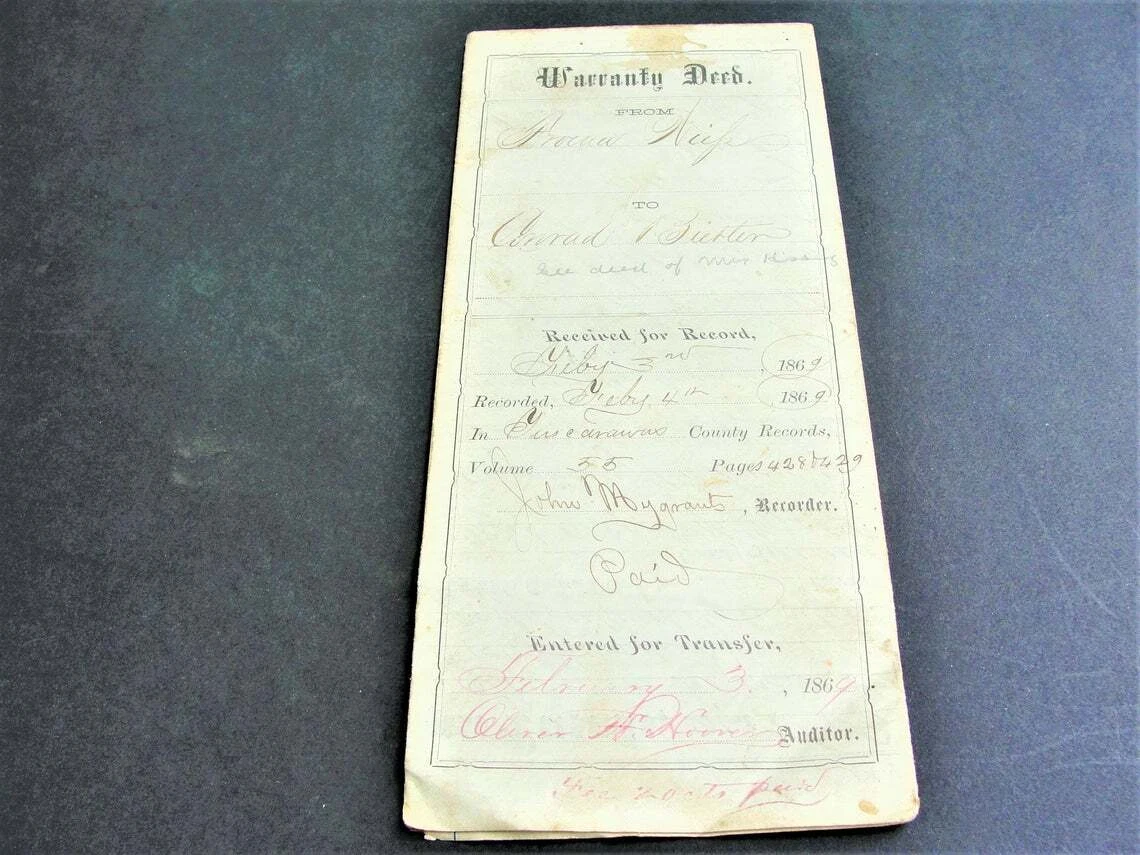 Warranty Deed.
FROM
TO
Conrad
See deed of
Received for Record,
Feby 3rd, 1869
Recorded, Feby 4th 1869
In Tuscarawas County Records,
Volume 55 Pages 428 & 429
John Mygrants, Recorder.
Paid
Entered for Transfer,
February 3. , 1869
Oliver H. Hoover Auditor.
Fee 20 cts paid